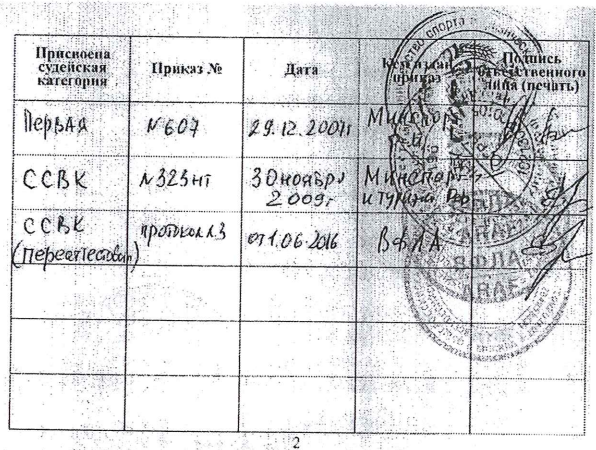 Присвоена
судейская
категория
Приказ №
Дата
Кем издан
приказ
Подпись
ответственного
лица (печать)
Первая
N 607
29.12.2007г
Минспорт
ССВК
N 323 нг
30 ноября
2009г
Минспорт
и туризма РФ
ССВК
(переаттестован)
протокол 3
от 1.06.2016
ВФЛА
ВФЛА
ARAF
ВФЛА
ARAF
2